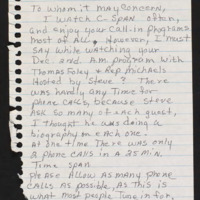 To whom it may concern,
I watch C-SPAN often,
and enjoy your call-in programs
most of all. However, I must
say while watching your
Dec. 2nd A.M. program with
Thomas Foley & Rep. Michaels
Hosted by Steve ? There
was hardly any time for
phone calls, because Steve
ask so many of each guest,
I thought he was doing a
biography on each one.
At one time there was only
a phone calls in a 25 min.
Time span.
Please allow as many phone
calls as possible, as this is
what most people tune in for,